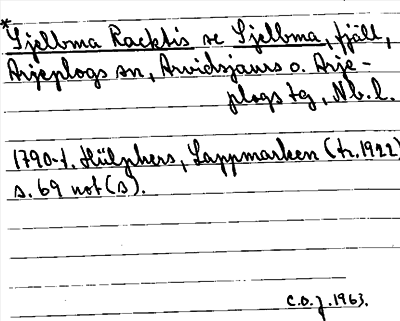 *Sjelbma Racktis se Sjelbma, fjäll,
Arjeplogs sn, Arvidsjaurs o. Arje-
plogs tg, Nb. l.
1790-t. Hülphers, Lappmarken (tr. 1922)
s. 69 not (s).
C.O.J. 1963.